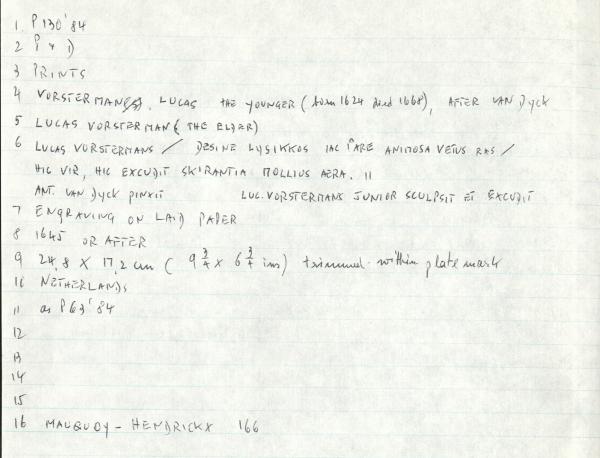 1 P130'84
2 P + D
3 PRINTS
4 VORSTERMAN(S), LUCAS THE YOUNGER (born 1624 died 1668), AFTER VAN DYCK
5 LUCAS VORSTERMAN (THE ELDER)
6 LUCAS VORSTERMANS / DESINE LYSIKKOS IACTARE ANIMOSA VETUS RAS /
HIC VIR, HIC EXCUDIT SKIRANTIA MOLLIUS AERA. 11
ANT. VAN DYCK PINXIT LUC. VORSTERMANS JUNIOR SCULPSIT ET EXCUDIT
7 ENGRAVING ON LAID PAPER
8 1645 OR AFTER
9 24,8 X 17,2 cm ( 9 3/4 X 6 3/4 ins) trimmed within plate mark
10 NETHERLANDS
11 as P63'84
12
13
14
15
16 MAUQUOY-HENDRICKX 166